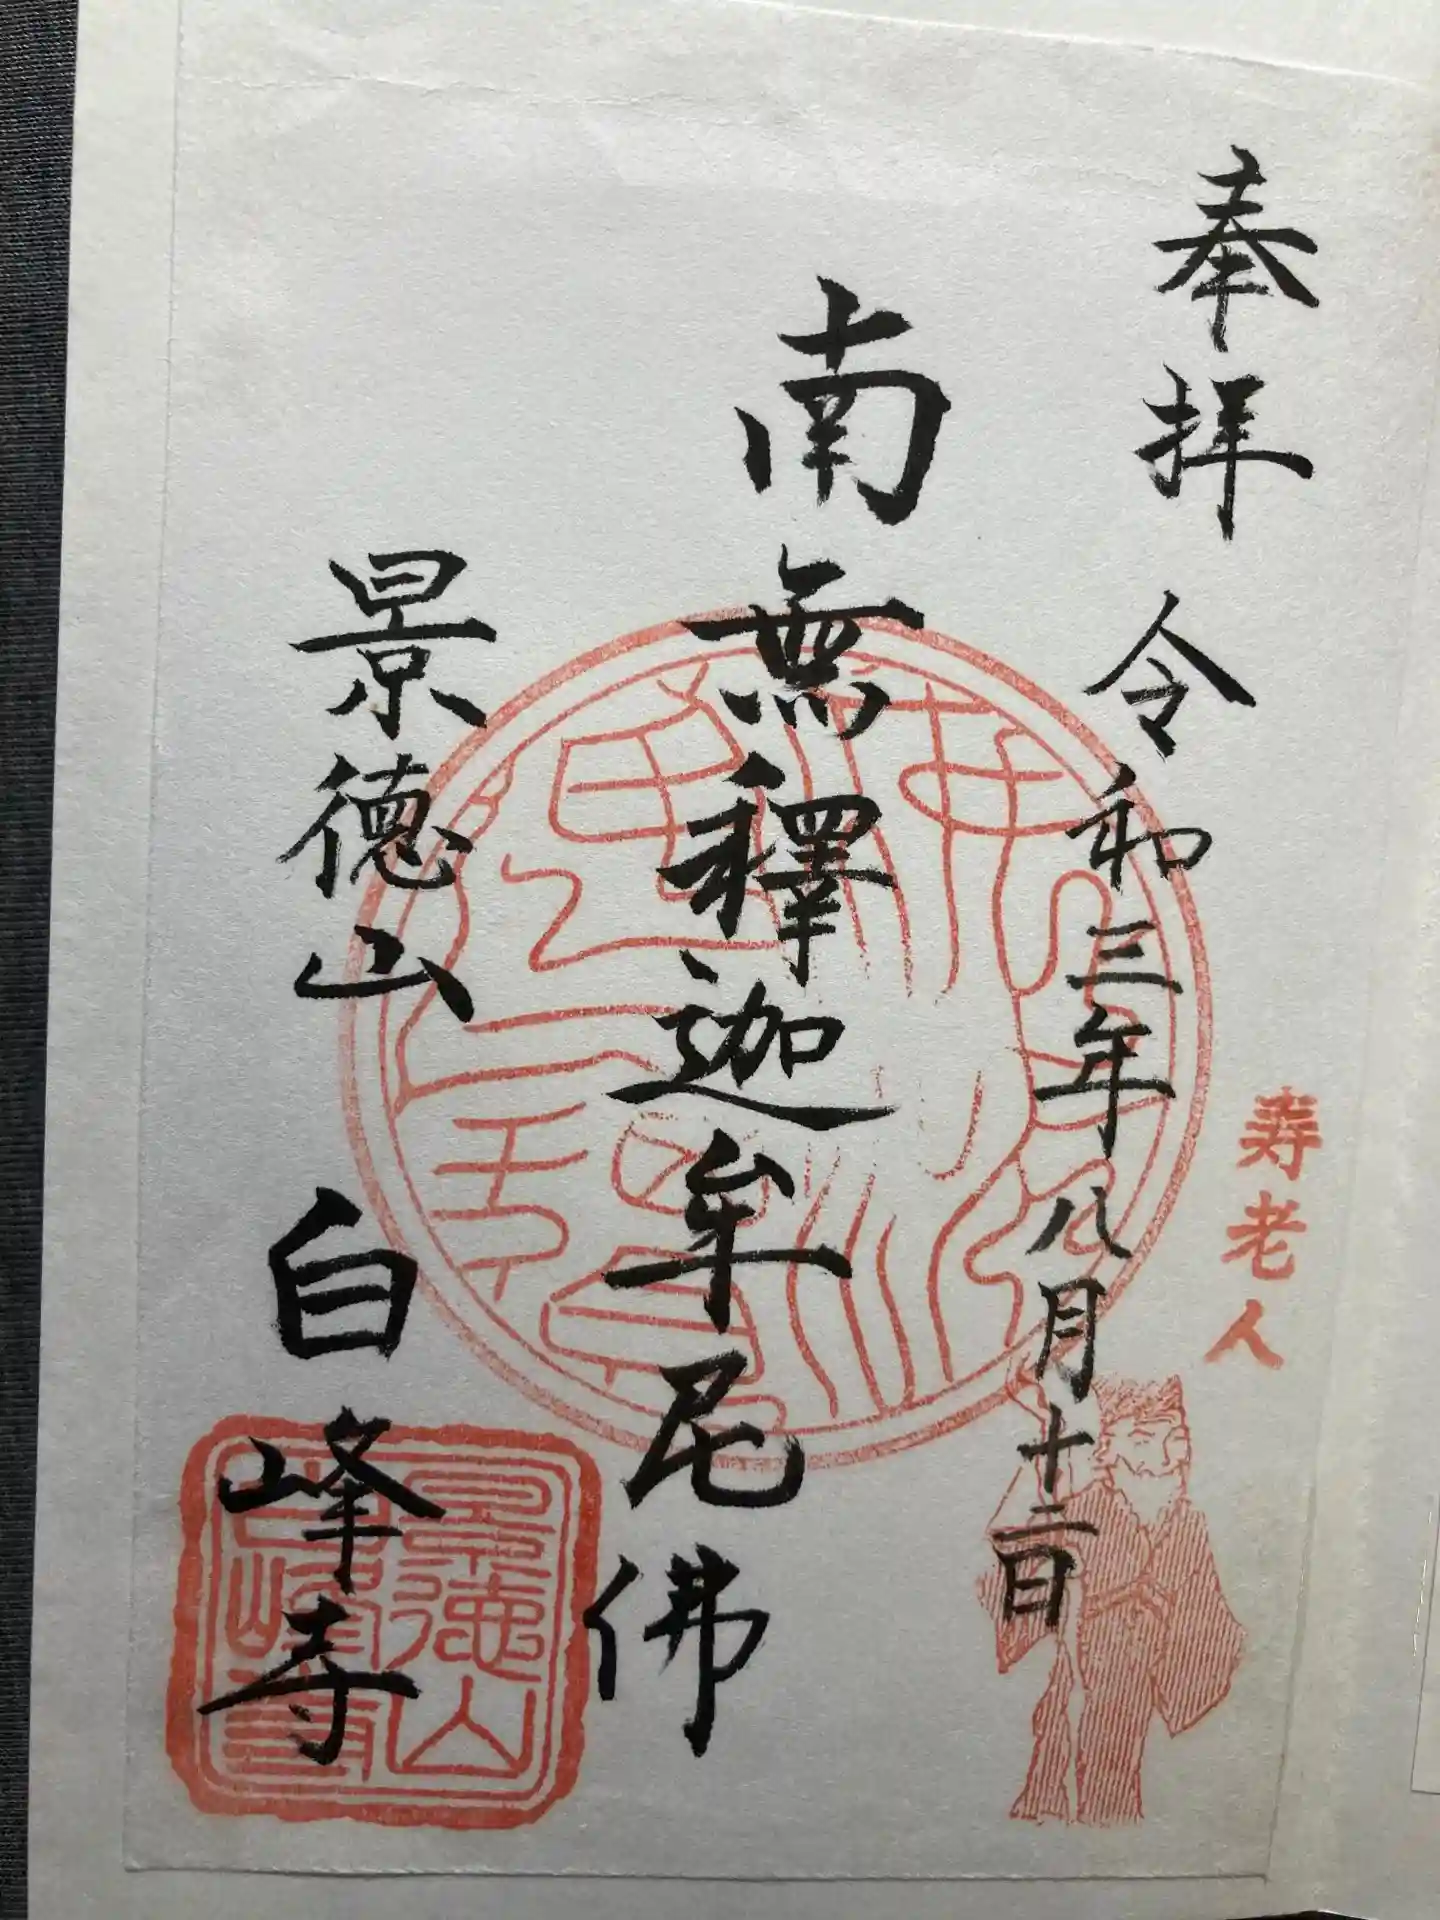 奉拝 令和三年八月十二日
寿老人
南無釋迦牟尼佛
景徳山 白峰寺
景徳山
白峰寺